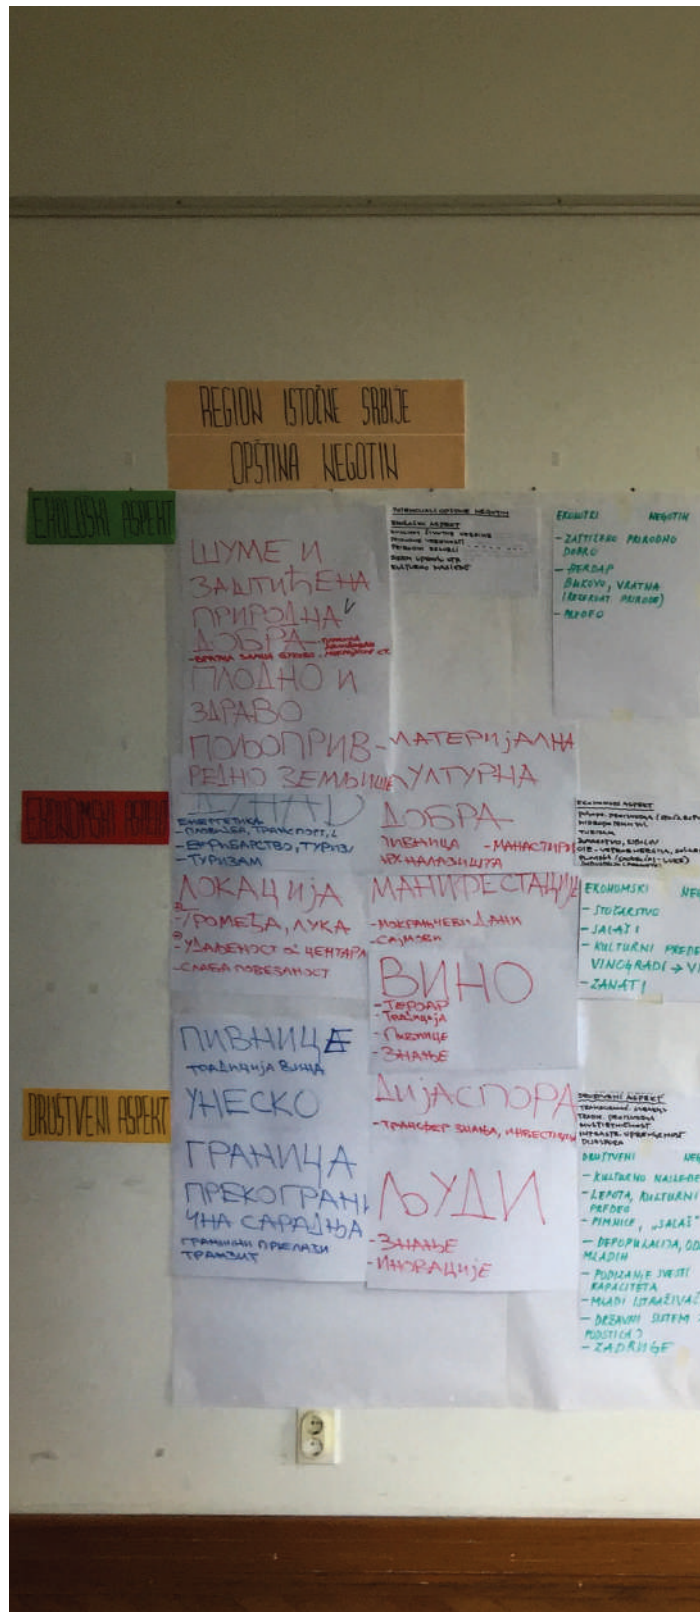 REGION ISTOČNE SRBIJE
OPŠTINA NEGOTIN
EKOLOŠKI ASPEKT
ШУМЕ И
ЗАШТИЋЕНА
ПРИРОДНА
ДОБРА
ПЛОДНО И
ЗДРАВО
ПОЉОПРИВ-
РЕДНО ЗЕМЉИШ
POTENCIJALI OPŠTINE NEGOTIN
EKOLOŠKI ASPEKT
KULTURNO NASLEĐE
NEGOTIN
- ZAŠTIĆENO PRIRODNO
DOBRO
- ĐERDAP
BUKOVO, VRATNA
(REZERVAT PRIRODE)
МАТЕРИЈАЛНА
КУЛТУРНА
ДОБРА
ПИВНИЦА - МАНАСТИРИ
НАЛАЗИШТА
EKONOMSKI
ЕНЕРГЕТИКА
- ПЛОВИДБА, ТРАНСПОРТ,
- РИБАРСТВО,
- ТУРИЗАМ
ЛОКАЦИЈА
- ТРОМЕЂА, ЛУКА
- УДАЉЕНОСТ ОД ЦЕНТАРА
- СЛАБА ПОВЕЗАНОСТ
МАНИФЕСТАЦИЈЕ
- МОКРАЊЧЕВИ ДАНИ
- САЈМОВИ
ВИНО
- ТЕРОАР
- ТРАДИЦИЈА
- ПИВНИЦЕ
- ЗНАЊЕ
ASPEKT
TURIZAM
EKONOMSKI NE
- STOČARSTVO
- SALAŠI
- KULTURNI PREDE
VINOGRADI → VI
- ZANATI
DRUŠTVENI ASPEKT
ПИВНИЦЕ
ТРАДИЦИЈА ВИНА
УНЕСКО
ГРАНИЦА
ПРЕКОГРАНИ
ЧНА САРАДЊА
ГРАНИЧНИ ПРЕЛАЗИ
ТРАНЗИТ
ДИЈАСПОРА
- ТРАНСФЕР ЗНАЊА, ИНВЕСТИЦИЈЕ
ЉУДИ
- ЗНАЊЕ
- ИНОВАЦИЈЕ
DRUŠTVENI ASPEKT
MULTIETNIČNOST
DIJASPORA
DRUŠTVENI NE
- KULTURNO NASLEĐE
- LEPOTA, KULTURNI
PREDEO
- PIMNICE, „SALAŠ"
- DEPOPULACIJA, OD
MLADIH
- PODIZANJE SVESTI
KAPACITETA
- MLADI ISTRAŽIVAČ
- DRŽAVNI SISTEM
PODSTICAJ
- ZADRUGE